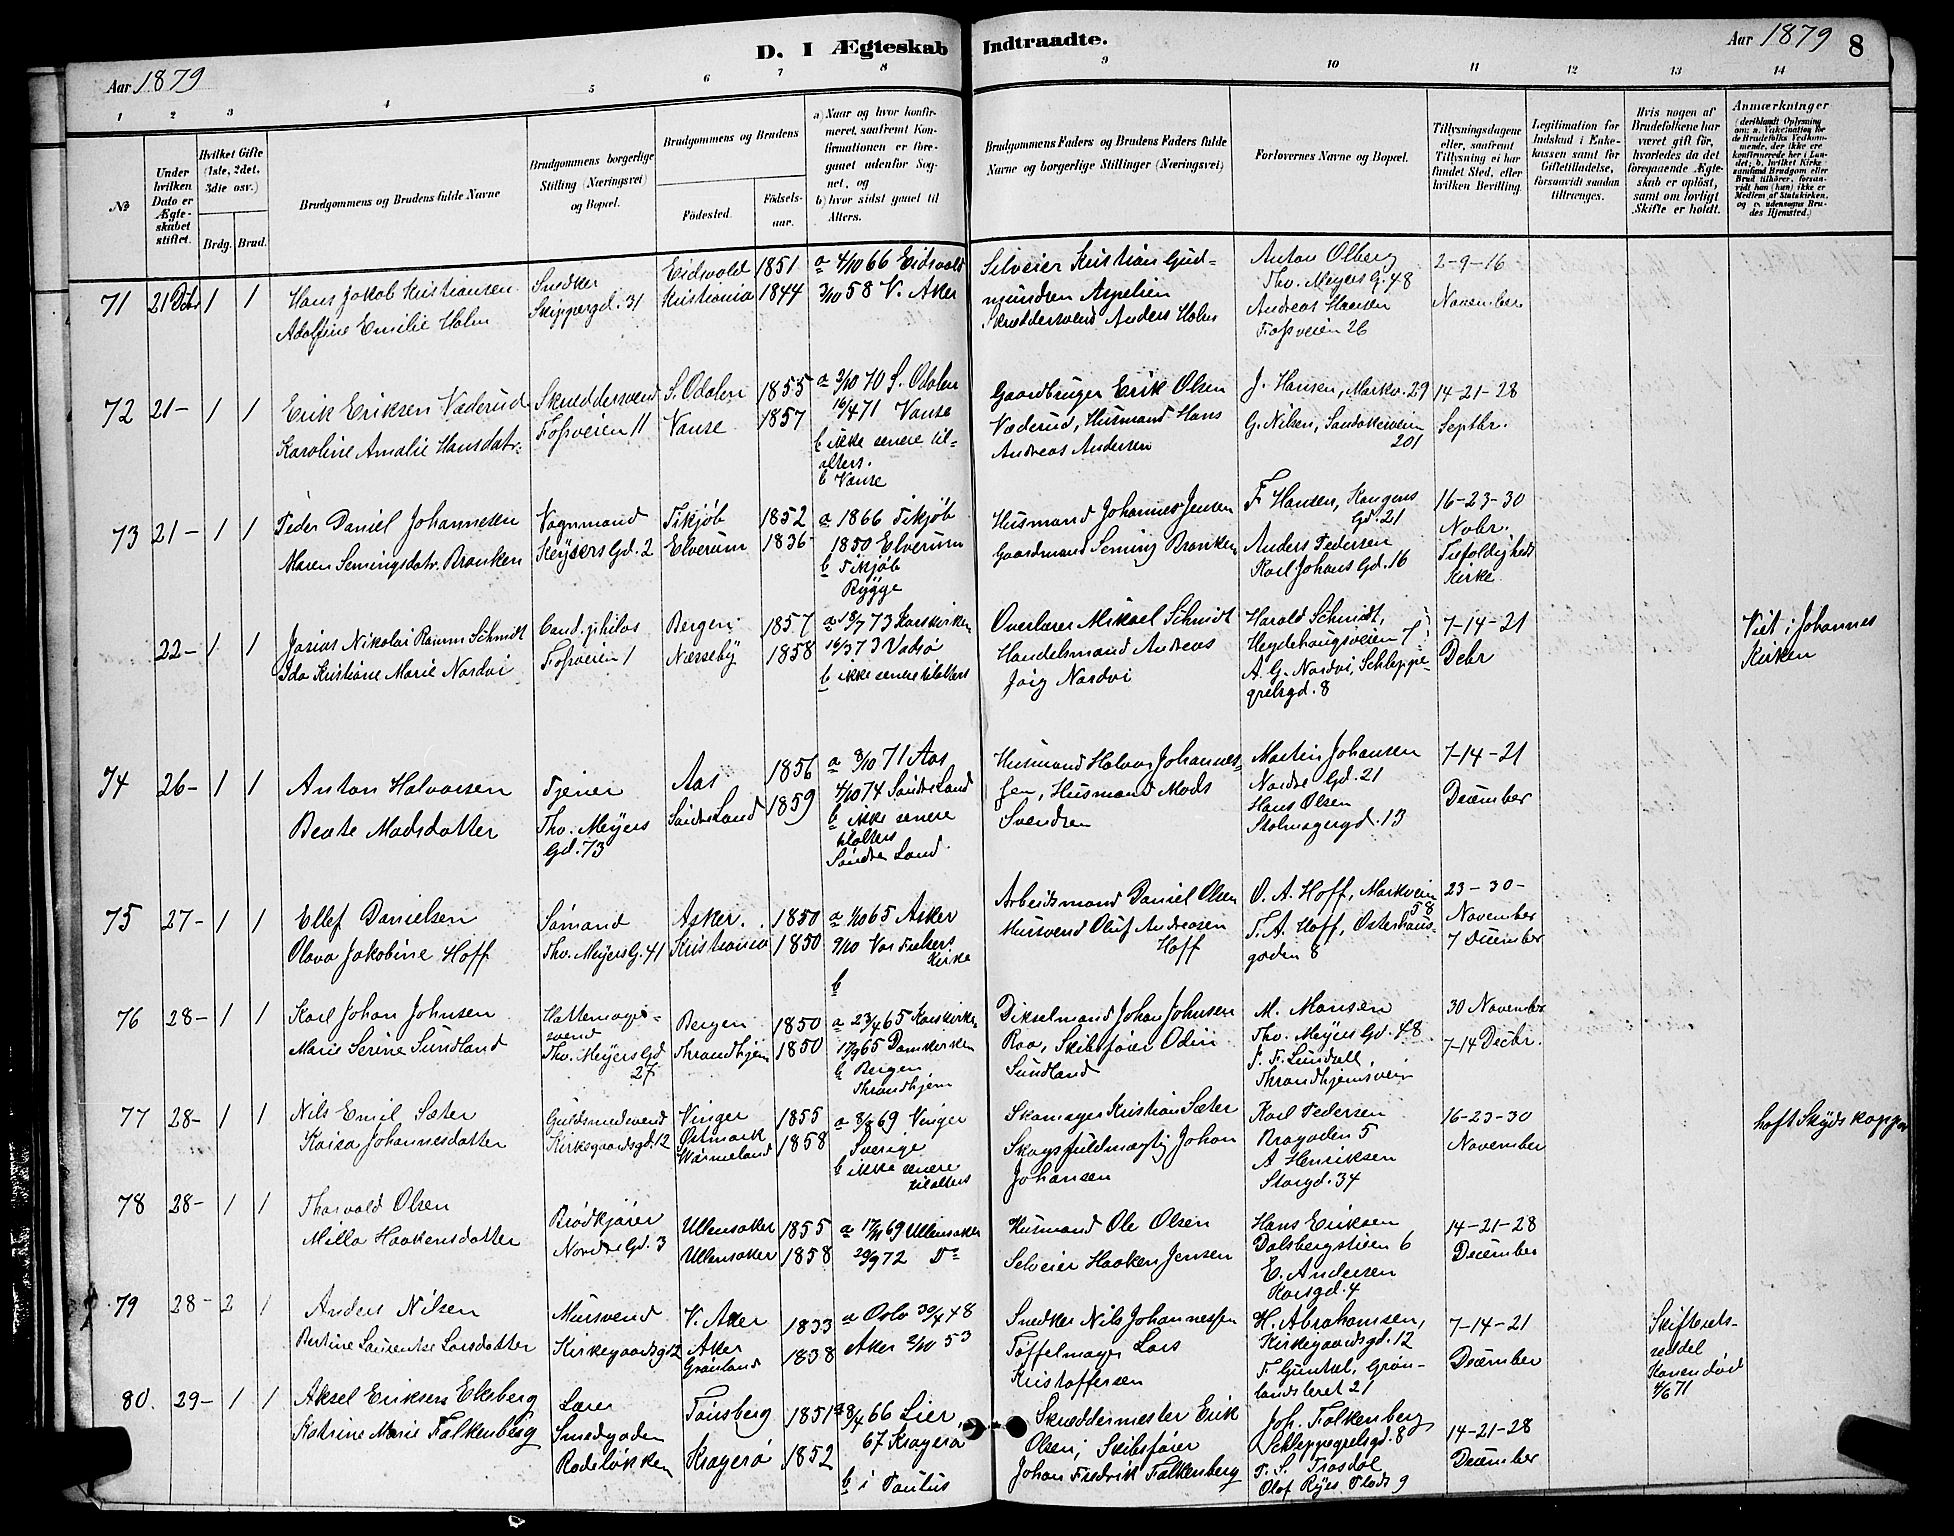 D. I Ægteskab Indtraadte.
Aar 1879
Aar 1879 8
1 2 3 4 5 6 7 8 9 10 11 12 13 14
№
Under hvilken Dato er Ægteskabet stiftet.
Hvilket Gifte (1ste, 2det, 3die osv.)
Brdg. Brud.
Brudgommens og Brudens fulde Navne
Brudgommens borgerlige Stilling (Næringsvei) og Bopæl.
Brudgommens og Brudens
Fødested. Fødselsaar.
a) Naar og hvor konfirmeret, saafremt Konfirmationen er foregaaet udenfor Sognet, og
b) hvor sidst gaaet til Alters.
Brudgommens Faders og Brudens Faders fulde Navne og borgerlige Stillinger (Næringsvei)
Forlovernes Navne og Bopæl.
Tillysningsdagene eller, saafremt Tillysning ei har fundet Sted, efter hvilken Bevilling.
Legitimation for Indskud i Enkekassen samt for Giftetilladelse, forsaavidt saadan tiltrænges.
Hvis nogen af Brudefolkene har været gift før, hvorledes da det foregaaende Ægteskab er opløst, samt om lovligt Skifte er holdt.
Anmærkninger
71 21 Dcbr 1 1
Hans Jakob Kristiansen
Adolfine Emilie Holm
Snedker
Skippergd. 31
Eidsvold 1851
Kristiania 1844
a 4/10 66 Eidsvold
3/10 58 V. Aker
Selveier Kristian Gud-
mundsen Aspelien
Skræddersvend Anders Holm
Anton Olberg
Thv. Meyers G. 48
Andreas Hansen
Fosveien 26
2-9-16
November
72 21- 1 1
Erik Eriksen Væderud
Karoline Amalie Hansdatr.
Skræddersvend
Fosveien 11
S. Odalen 1855
Vanse 1857
a 2/10 70 S. Odalen
16/4 71 Vanse
b ikke senere til-
alters.
b Vanse
Gaardbruger Erik Olsen
Væderud, Husmand Hans
Andreas Andersen
J. Hansen, Markv. 29
G. Nilsen, Sandakerveien
201
14-21-28
Septbr.
73 21- 1 1
Peder Daniel Johannesen
Maren Semingsdatr. Branken
Vognmand
Keysers Gd. 2
Tikjøb 1852
Elverum 1836
a 1866 Tikjøb
1850 Elverum
b Tikjøb
Rygge
Husmand Johannes Jensen
Gaardmand Seming Branken
F. Hansen, Kongens
Gd. 21
Anders Pedersen
Karl Johans Gd. 16
16-23-30
Nobr.
Trefoldigheds
Kirke
22- 1 1
Josias Nikolai Ramm Schmidt
Ida Kristiane Marie Nordvi
Cand. philos
Fosveien 1
Bergen 1857
Næsseby 1858
a 13/7 73 Korskirken
16/3 73 Vadsø
b ikke senere tilalters
Overlærer Mikael Schmidt
Handelsmand Andreas
Jørg Nordvi
Harald Schmidt,
Hegdehaugsveien 7
A. G. Nordvi, Schleppe-
grelsgd. 8
7-14-21
Debr
Viet i Johannes
Kirken
74 26- 1 1
Anton Halvorsen
Beate Madsdatter
Tjener
Thv. Meyers
Gd. 73
Aas 1856
Søndre Land 1859
a 8/10 71 Aas
4/10 74 Søndre Land
b ikke senere
tilalters
Søndre Land
Husmand Halvor Johannes-
sen, Husmand Mads
Svendsen
Martin Johansen
Nordre Gd. 21
Hans Olsen
Stolmagergd. 13
7-14-21
December
75 27- 1 1
Ellef Danielsen
Olava Jakobine Hoff
Sømand
Thv. Meyers G. 41
Asker. 1850
Kristiania 1850
a 1/10 65 Asker
9/10 Vor Frelsers
Kirke
b
Arbeidsmand Daniel Olsen
Mursvend Oluf Andreasen
Hoff
O. A. Hoff, Markveien
58
T. A. Hoff, Østerhaus-
gaden 8
23-30-
November
7 December
76 28- 1 1
Karl Johan Johnsen
Marie Serine Sundland
Hattemager-
svend
Thv. Meyers Gd
27
Bergen 1850
Throndhjem 1850
a 23/4 65 Korskirken
17/9 65 Domkirken
b Bergen
Throndhjem
Dikselmand Johan Johnsen
Raa, Skibsfører Odin
Sundland
M. Monsen
Thv. Meyers Gd. 48
Throndhjemsvein
30 November
7-14 Decbr.
77 28- 1 1
Nils Emil Sæter
Kaisa Johannesdatter
Guldsmedsvend
Kirkegaardsgd. 12
Vinger 1855
Østmark 1858
Wärmeland
a 8/8 69 Vinger
Sverige
b ikke senere
tilalters
Skomager Kristian Sæter
Skogsfuldmægtig Johan
Johansen
Karl Pedersen
Brogaden 5
A Henriksen
Storgd. 34
16-23-30
November
haft Skydskopper
78 28- 1 1
Thorvald Olsen
Milla Haakensdatter
Brødkjører
Nordre Gd. 3
Ullensaker 1855
Ullensaker 1858
a 17/10 69 Ullensaker
29/9 72 Do
Husmand Ole Olsen
Selveier Haaken Jensen
Hans Eriksen
Dalsbergstien 6
E. Andersen
Korsgd. 4
14-21-28
December
79 28- 2 1
Anders Nilsen
Bertine Laurentse Larsdatter
Mursvend
Kirkegaardsg 12
V. Aker 1833
Aker 1838
Grønland
a Oslo 30/4 48
Aker 2/10 53
Snedker Nils Johannessen
Tøffelmager Lars
Kristoffersen
H. Abrahamsen,
Kirkegaardsgd. 12
Grøn-
landsleret 21
7-14-21
December
Skifterets-
seddel
Konen død
4/6 71
80. 29- 1 1
Aksel Eriksen Ekeberg
Katrine Marie Falkenberg
Lærer
Smedgaden
Rodeløkken
Tønsberg 1851
Kragerø 1852
a 8/4 66 Lier
67 Kragerø
b i Paulus
Skræddermester Erik
Olsen, Skibsfører
Johan Fredrik Falkenberg
Joh. Falkenberg
Schleppegrelsgd. 8
T. S. Trosdal
Olaf Ryes Plads 9
14-21-28
December